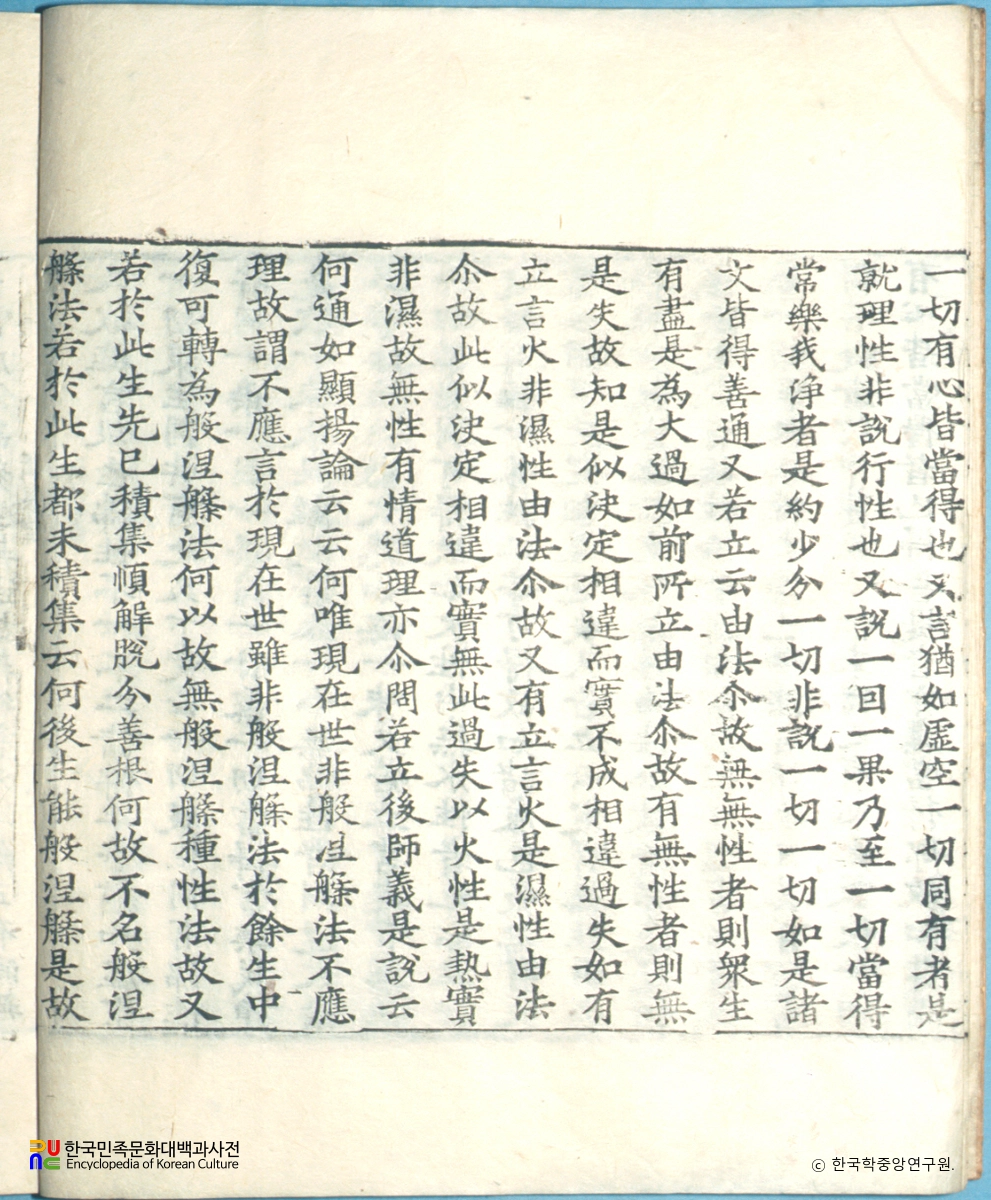 一切有心皆當得也又言猶如虛空一切同有者是
就理性非說行性也又說一因一果乃至一切當得
常樂我淨者是約少分一切非說一切一切如是諸
文皆得善通又若立云由法尒故無無性者則衆生
有盡是為大過如前所立由法尒故有無性者則無
是失故知是似決定相違而實不成相違過失如有
立言火非濕性由法尒故又有立言火是濕性由法
尒故此似決定相違而實無此過失以火性是熱實
非濕故無性有情道理亦尒問若立後師義是說云
何通如顯揚論云云何唯現在世非般涅槃法不應
理故謂不應言於現在世雖非般涅槃法於餘生中
復可轉為般涅槃法何以故無般涅槃種性法故又
若於此生先已積集順解脫分善根何故不名般涅
槃法若於此生都未積集云何後生能般涅槃是故
한국민족문화대백과사전
Encyclopedia of Korean Culture
ⓒ 한국학중앙연구원.